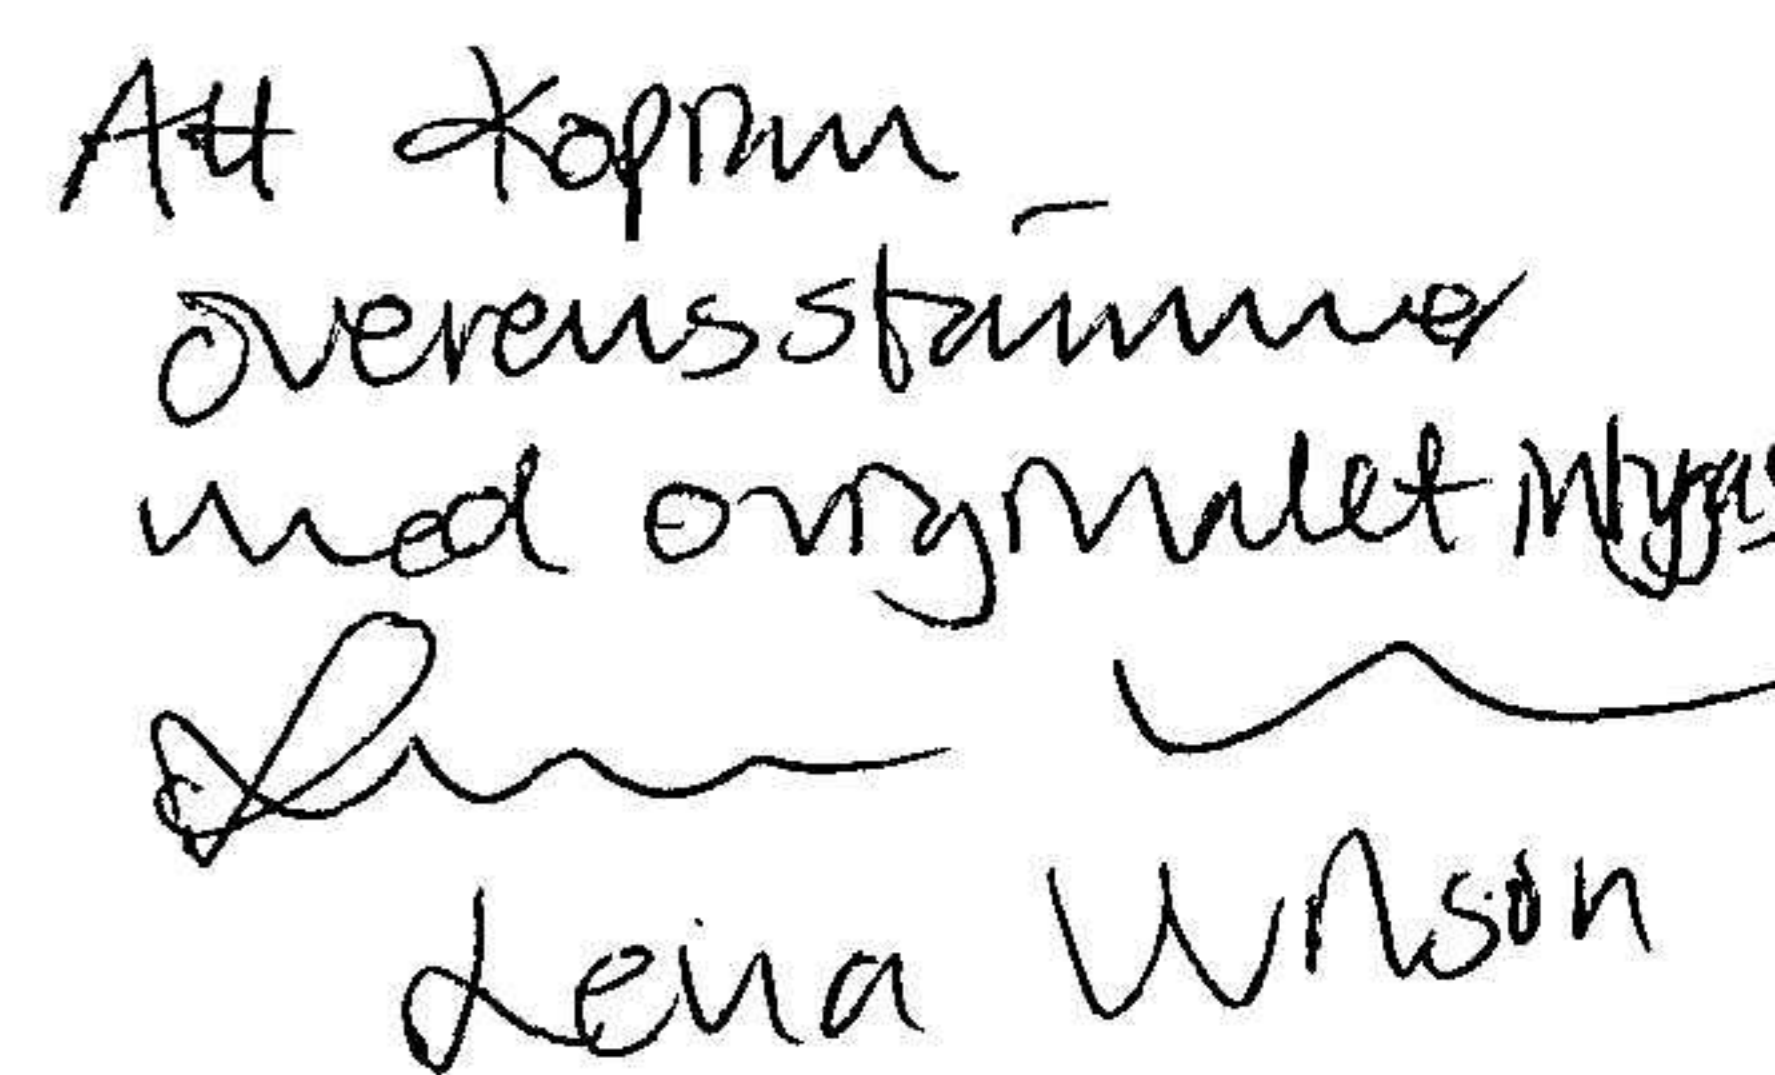 Att kopian
överensstämmer
med originalet intygas
Lena Wilson